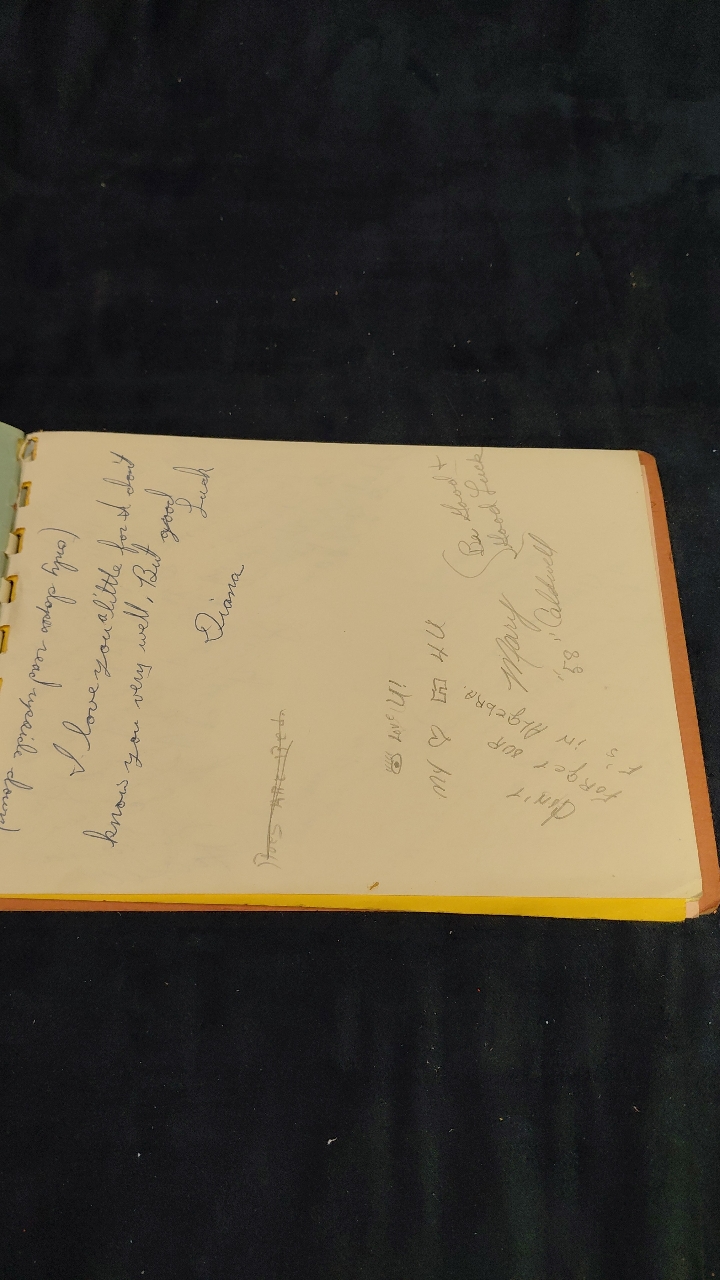 (only dopes read upside down)
I love you a little for I don't
know you very well, But good
Luck
Diana
Roses ARE Red
My 4 U
(Be Good +
Good Luck
Mary
Caldwell
"58"
Don't
FORGET OUR
IN AlgEBRA.